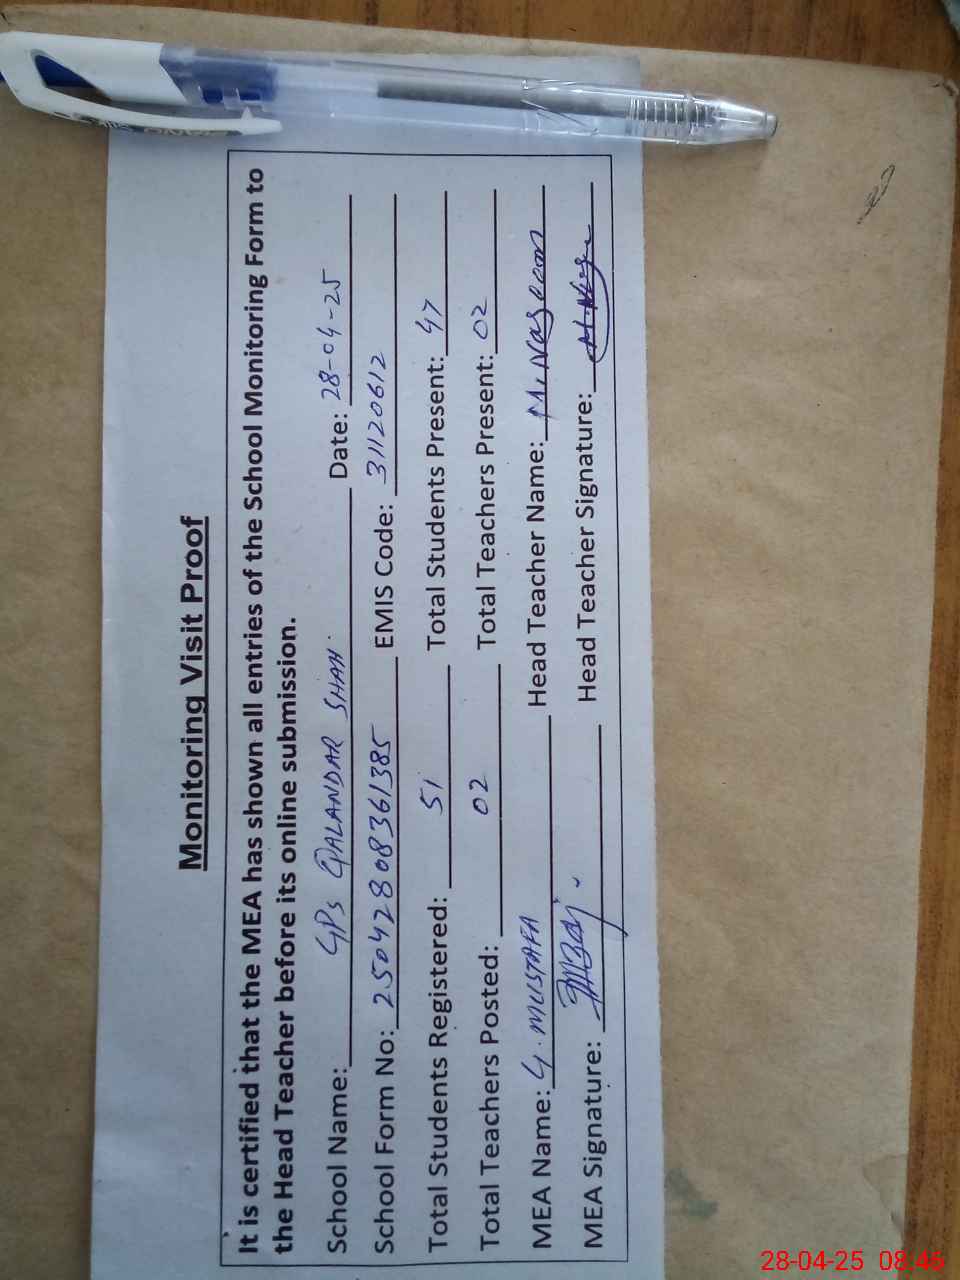 Monitoring Visit Proof
It is certified that the MEA has shown all entries of the School Monitoring Form to
the Head Teacher before its online submission.
School Name: GPS QALANDAR SHAH. Date: 28-04-25
School Form No: 25042808361385 EMIS Code: 31120612
Total Students Registered: 51 Total Students Present: 47
Total Teachers Posted: 02 Total Teachers Present: 02
MEA Name: G. MUSTAFA Head Teacher Name: M. Naseem
MEA Signature: Head Teacher Signature:
28-04-25 08:46